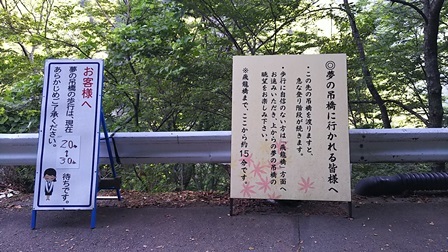 お客様へ
夢の吊橋の歩行は、現在
20分
30
待ちです。
あらかじめご了承ください。
◎夢の吊橋に行かれる皆様へ
・この先の吊橋を渡りますと、
急な登り階段が続きます。
・歩行に自信のない方は「飛龍橋」方面へ
お進みいただき、上からの夢の吊橋の
眺望をお楽しみ下さい。
※飛龍橋まで、ここから約15分です。